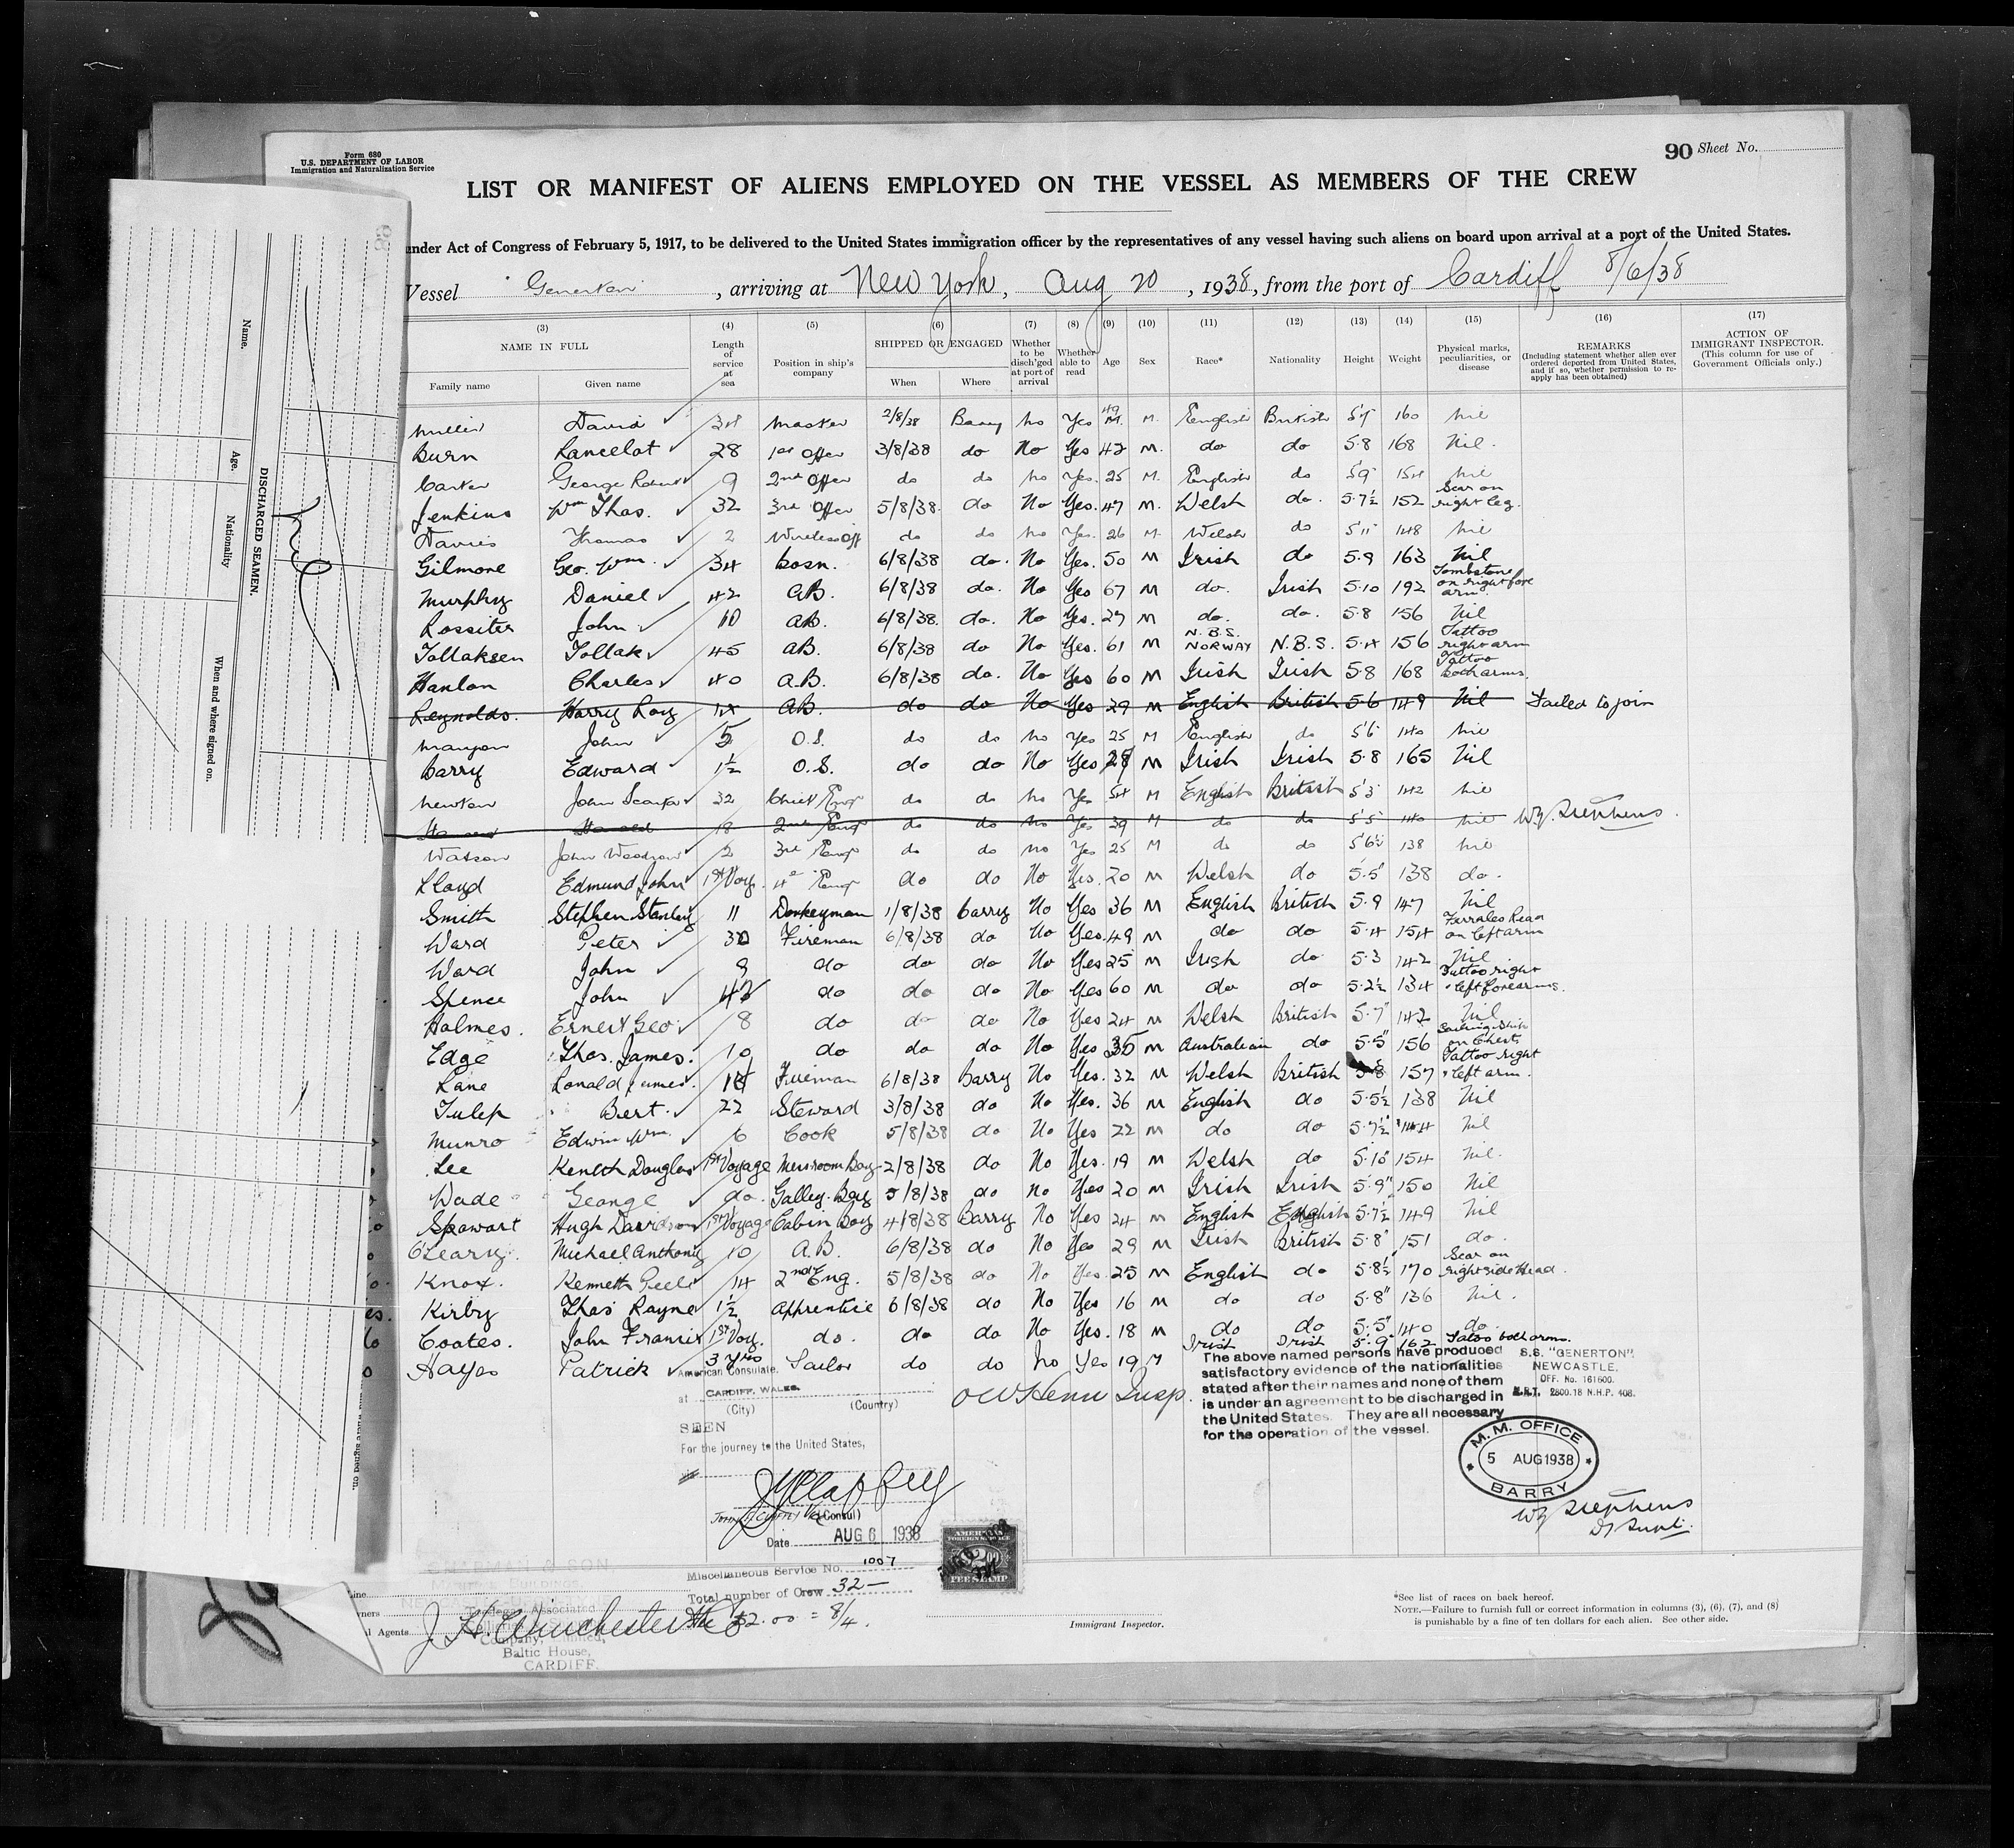 90 Sheet No.
Form 680
U.S. DEPARTMENT OF LABOR
Immigration and Naturalization Service
LIST OR MANIFEST OF ALIENS EMPLOYED ON THE VESSEL AS MEMBERS OF THE CREW
under Act of Congress of February 5, 1917, to be delivered to the United States immigration officer by the representatives of any vessel having such aliens on board upon arrival at a port of the United States.
Vessel Generton, arriving at New York, Aug 20, 1938, from the port of Cardiff 8/6/38
(3) (4) (5) (6) (7) (8) (9) (10) (11) (12) (13) (14) (15) (16) (17)
NAME IN FULL Length of service at sea Position in ship's company SHIPPED OR ENGAGED Whether to be disch'ged at port of arrival Whether able to read Age Sex Race* Nationality Height Weight Physical marks, peculiarities, or disease REMARKS (Including statement whether alien ever ordered deported from United States, and if so, whether permission to re-apply has been obtained) ACTION OF IMMIGRANT INSPECTOR. (This column for use of Government Officials only.)
Family name Given name When Where
David 34 Master 2/8/38 Barry No Yes 49 M. English British 5'7 160 Nil
Burn Lancelot 28 1st Offer 3/8/38 do No Yes 42 M. do do 5.8 168 Nil.
Carter George Robert 9 2nd Offer do do No Yes. 25 M. English do 5'9 154 Nil
Jenkins Wm Thos. 32 3rd Offer 5/8/38. do No Yes. 47 M. Welsh do. 5.7½ 152 Scar on right leg.
Davies Thomas 2 Wireless Off do do No Yes. 26 M Welsh do 5'11 148 Nil
Gilmore Geo. Wm. 34 Bosn. 6/8/38 do. No Yes. 50 M Irish do 5.9 163 Nil
Murphy Daniel 42 A.B. 6/8/38 do. No Yes 67 M do. Irish 5.10 192 Tombstone on right fore arm
Rossiter John 10 A.B. 6/8/38. do. No Yes. 27 M do. do. 5.8 156 Nil
Tollaksen Tollak 45 A.B. 6/8/38 do No Yes. 61 M N.B.S. NORWAY N.B.S. 5.4 156 Tattoo right arm
Hanlon Charles 40 A.B. 6/8/38 do. No Yes 60 M Irish Irish 5.8 168 Tattoo both arms.
Reynolds. Harry Roy 14 A.B. do do No Yes 29 M English British 5.6 149 Nil Failed to join
John 5 O.S. do do No Yes 25 M English do 5'6 140 Nil
Barry Edward 1½ O.S. do do No Yes 28 M Irish Irish 5.8 165 Nil
Newton John 32 Chief Eng do do No Yes 54 M English British 5'3 142 Nil
18 2nd Eng do do No Yes 39 M do do 5'5 140 Nil W.J. Stephens
Watson John Woodrow 2 3rd Eng do do No Yes 25 M do do 5'6½ 138 Nil
Lloyd Edmund John 1st Voy. 4th Eng do do No Yes. 20 M Welsh do 5.5 138 do.
Smith Stephen Stanley 11 Donkeyman 1/8/38 Barry No Yes 36 M English British 5.9 147 Nil
Ward Peter 30 Fireman 6/8/38 do No Yes. 49 M do do 5.4 154 on left arm
Ward John 9 do do do No Yes 25 M Irish do 5.3 142 Nil
Spence John 42 do do do No Yes 60 M do do 5.2½ 134 Tattoo right & left forearms.
Holmes. Ernest Geo. 8 do do do No Yes 24 M Welsh British 5.7" 142 Nil
Edge Thos. James. 10 do do do No Yes 35 M Australian do 5.5" 156 Sailing Ship on Chest
Lane Ronald James. Fireman 6/8/38 Barry No Yes. 32 M Welsh British 5.8 157 Tattoo right & left arm.
Tulep Bert. 22 Steward 3/8/38 do No Yes. 36 M English do 5.5½ 138 Nil
Munro Edwin Wm. 6 Cook 5/8/38 do No Yes 22 M do do 5.7½" 144 Nil
Lee Keneth Douglas 1st Voyage Messroom Boy 2/8/38 do No Yes. 19 M Welsh do 5.10 154 Nil.
Wade George do. Galley Boy 5/8/38 do No Yes 20 M Irish Irish 5.9" 150 Nil
Spowart Hugh Davidson 1st Voyage Cabin Boy 4/8/38 Barry No Yes 24 M English English 5.7½ 149 Nil
O'Leary. Michael Anthony 10 A.B. 6/8/38 do No Yes 29 M Irish British 5.8" 151 do.
Knox. Kenneth 14 2nd Eng. 5/8/38 do No Yes. 25 M English do 5.8½ 170 Scar on right side Head.
Kirby Thos Rayne 1½ Apprentice 6/8/38 do No Yes 16 M do do 5.8" 136 Nil.
Coates. John Francis 1st Voy. do. do do No Yes. 18 M do do 5.5" 140 do.
Hayes Patrick 3 yrs Sailor do do No Yes 19 M Irish Irish 5.9" 162 Tatoo both arms.
American Consulate.
at CARDIFF, WALES.
(City) (Country)
SEEN
For the journey to the United States,
(Consul)
Date AUG 6 1938
Miscellaneous Service No. 1007
Total number of Crew 32 —
$2.00 = 8/4.
AMERICAN FOREIGN SERVICE $2.00 FEE STAMP
The above named persons have produced
satisfactory evidence of the nationalities
stated after their names and none of them
is under an agreement to be discharged in
the United States. They are all necessary
for the operation of the vessel.
S.S. "GENERTON".
NEWCASTLE.
OFF. No. 161600.
N.R.T. 2800.18 N.H.P. 408.
M. M. OFFICE
5 AUG 1938
BARRY
W.J. Stephens
D/ Supt.
J. H. Winchester & Co
Company, Limited,
Baltic House,
CARDIFF.
Immigrant Inspector.
*See list of races on back hereof.
NOTE.—Failure to furnish full or correct information in columns (3), (6), (7), and (8)
is punishable by a fine of ten dollars for each alien. See other side.
DISCHARGED SEAMEN.
Name. Age. Nationality When and where signed on.
Nil